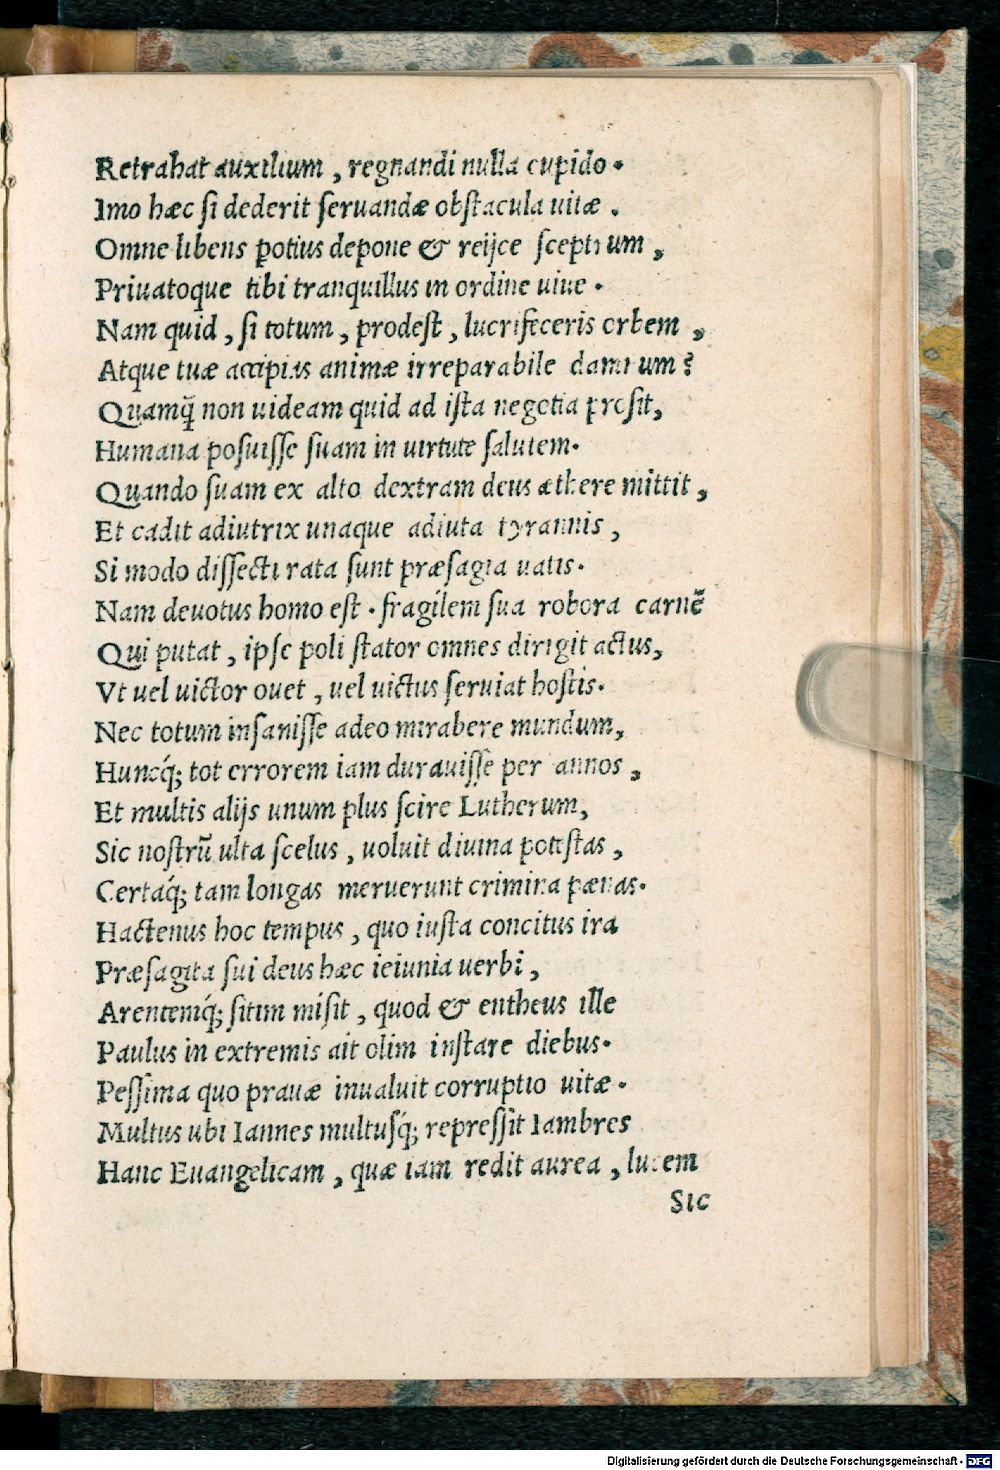 Retrahat auxilium, regnandi nulla cupido.
Imo hæc ſi dederit ſeruandæ obſtacula uitæ.
Omne libens potius depone & reijce ſceptrum,
Priuatoque tibi tranquillus in ordine uiue.
Nam quid, ſi totum, prodeſt, lucrifeceris orbem,
Atque tuæ accipias animæ irreparabile damnum?
Quamq̃ non uideam quid ad iſta negotia proſit,
Humana poſuiſſe ſuam in uirtute ſalutem.
Quando ſuam ex alto dextram deus æthere mittit,
Et cadit adiutrix unaque adiuta tyrannis,
Si modo diſſecti rata ſunt præſagia uatis.
Nam deuotus homo eſt. fragilem ſua robora carnē
Qui putat, ipſe poli ſtator omnes dirigit actus,
Vt uel uictor ouet, uel uictus ſeruiat hoſtis.
Nec totum inſaniſſe adeo mirabere mundum,
Huncq́; tot errorem iam durauiſſe per annos,
Et multis alijs unum plus ſcire Lutherum,
Sic noſtrū ulta ſcelus, uoluit diuina poteſtas,
Certaq́; tam longas meruerunt crimina pœnas.
Hactenus hoc tempus, quo iuſta concitus ira
Præſagita ſui deus hæc ieiunia uerbi,
Arentemq́; ſitim miſit, quod & entheus ille
Paulus in extremis ait olim inſtare diebus.
Peſſima quo prauæ inualuit corruptio uitæ.
Multus ubi Iannes multuſq́; repreſſit Iambres
Hanc Euangelicam, quæ iam redit aurea, lucem
Sic
Digitalisierung gefördert durch die Deutsche Forschungsgemeinschaft - DFG